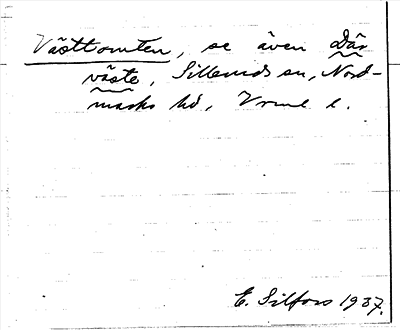 Västtomten, se även Där
väste, Silleruds sn, Nord-
marks hd, Vrml l.
E. Silfors 1937.